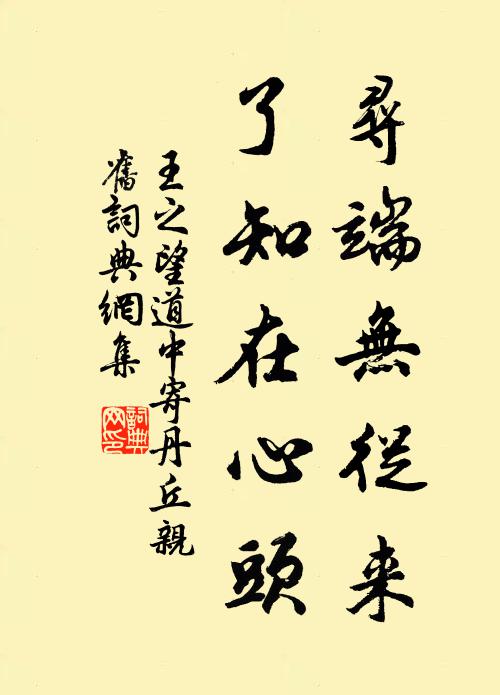 尋端無從来
了知在心頭
王之望道中寄丹丘親
舊詞典網集
詞典网印